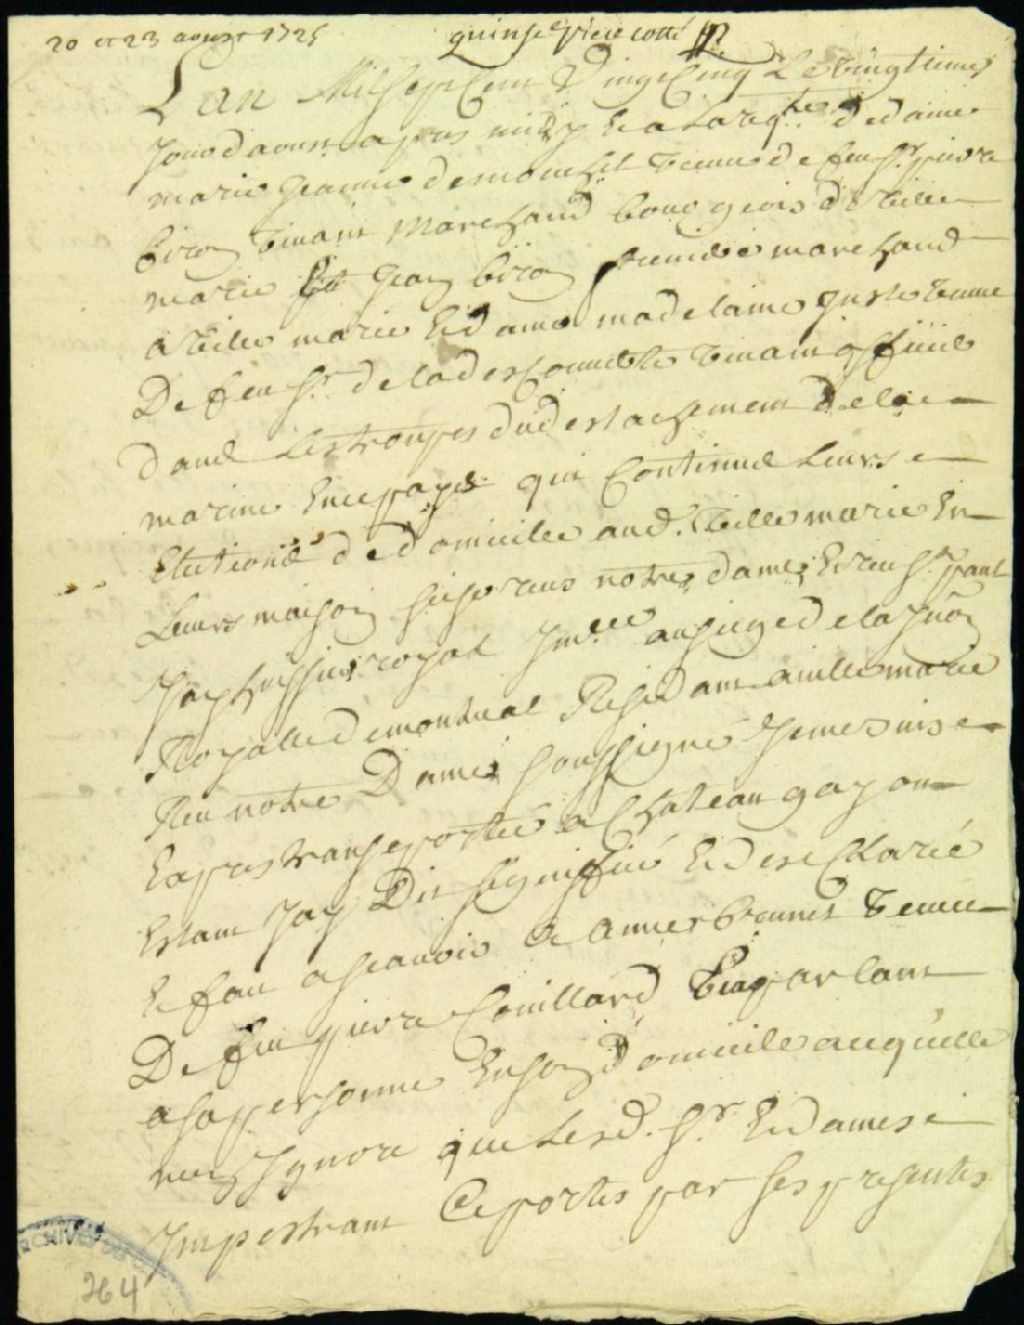 20 et 23 aoust 1725
quinse piece cotté P
L'an Mil sept Cent Vingt Cinq Le vingtiesme
Jour daoust apres midy Et a La req.te de dame
marie Jeanne demouchet veuve de feu Sr. piere
biron vivant Marchand bourgeois de ville
marie Jean biron marchand
a ville marie Et dame madelaine Juste veuve
De feu Sr. de ladescouverte vivant officié
dans Les troupes dud destachement de la
marine En ce pays qui Continue Leurs
Elections de domicille aud. ville marie En
Leurs maison sise rues notre dame Et rue St. paul
Jay huissier royal Jm.lé au siege de la Jûon
Royalle de montreal Residant a ville marie
Rue notre Dame soussigné Je me suis
Expres transporté a Chateau gay ou
Estant Jay Dit signiffié Et desclaré
Et fait a scavoir a Anne brunet veuve
De feu piere Couillard En parlant
a sa personne En son domicille a ce qu'elle
nen Jgnore que Lesd. Sr. Et dames
Jmpestrant Ce portes par ses presentes
ARCHIVES
264